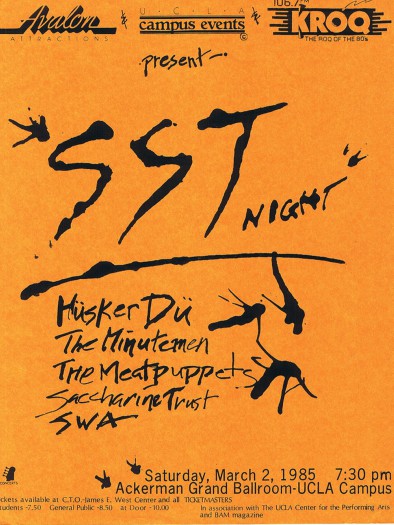 Avalon
ATTRACTIONS
&
UCLA
campus events
©
&
106.7
KROQ
THE ROQ OF THE 80's
present
SST
NIGHT
Hüsker Dü
The Minutemen
The Meatpuppets
Saccharine Trust
SWA
CONCERTS
Saturday, March 2, 1985 7:30 pm
Ackerman Grand Ballroom-UCLA Campus
ckets available at C.T.O.-James E. West Center and all TICKETMASTERS
tudents -7.50 General Public -8.50 at Door -10.00
In association with The UCLA Center for the Performing Arts
and BAM magazine